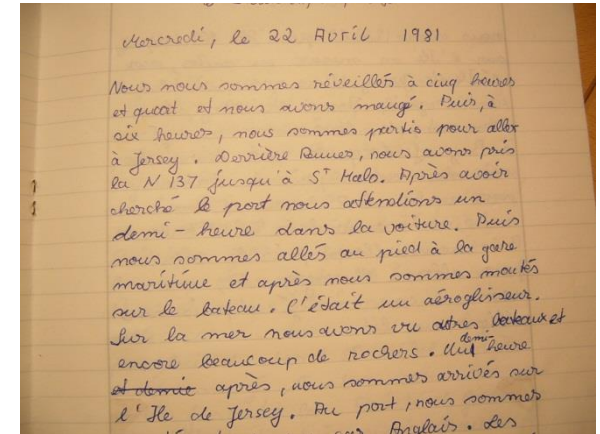 Mercredi, le 22 Avril 1981
Nous nous sommes réveillés à cinq heures
et quart et nous avons mangé. Puis, à
six heures, nous sommes partis pour aller
à Jersey. Derrière Rennes, nous avons pris
la N 137 jusqu'à St Malo. Après avoir
cherché le port nous attendions un
demi-heure dans la voiture. Puis
nous sommes allés au pied à la gare
maritime et après nous sommes montés
sur le bateau. C'était un aéroglisseur.
Sur la mer nous avons vu autres bateaux et
encore beaucoup de rochers. Une demi-heure
et demie après, nous sommes arrivés sur
l'Ile de Jersey. Au port, nous sommes
Anglais. Les